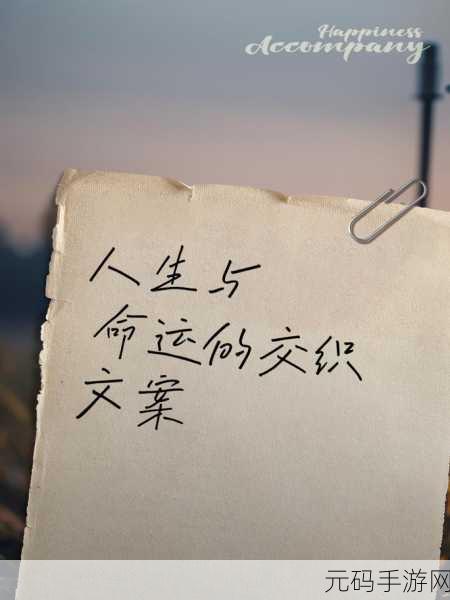 Happiness
Accompany
人生与
命运的交织
文案
元码手游网